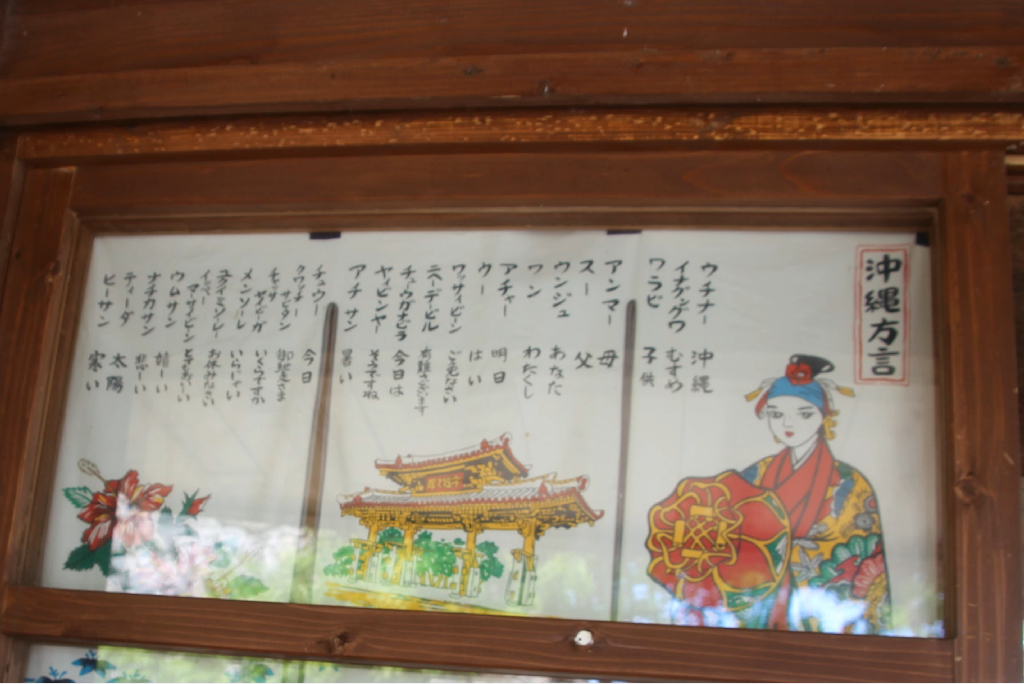 沖縄方言
ウチナー 沖縄
イナグングワ むすめ
ワラビ 子供
アンマー 母
スー 父
ウンジュ あなた
ワン わたくし
アチャー 明日
ウー はい
ワッサイビーン ごめんなさい
ニヘーデービル 有難うございます
チュウガナビラ 今日は
ヤイビンヤー そうですね
アチサン 暑い
チュウー 今日
クワッチーサビタン 御馳走さま
チャッサヤイビーガ いくらですか
メンソーレ いらっしゃい
ユクイミソーレー お休みなさい
イッペーマーサイビン とてもおいしい
ウムサン 嬉しい
ナチカサン 悲しい
ティーダ 太陽
ヒーサン 寒い